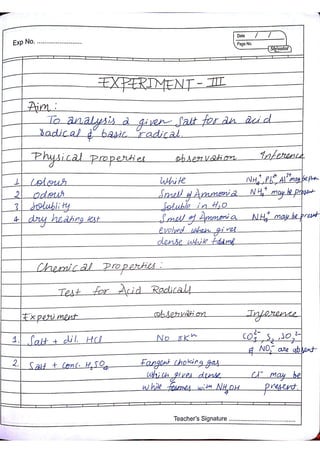 Exp No. ........................
Date / /
Page No.
EXPERIMENT - III
Aim :
To analysis a given Salt for an acid
radical & basic radical
Physical properties observation Inference
1 Colour White NH₄⁺, Pb²⁺, Al³⁺ may be
2 odour Smell of Ammonia NH₄⁺ may be present
3 Solubility Soluble in H₂O
4 dry heating test Smell of Ammonia NH₄⁺ may be present
Evolved when gives
dense white fumes
Chemical Properties :
Test for Acid Radicals
Experiment observation Inference
1. Salt + dil. HCl No rxn CO₃²⁻, S²⁻, SO₃²⁻
& NO₂⁻ are absent
2. Salt + conc. H₂SO₄ Fangent choking gas
which gives dense Cl⁻ may be
white fumes with NH₄OH present.
Teacher's Signature ................................